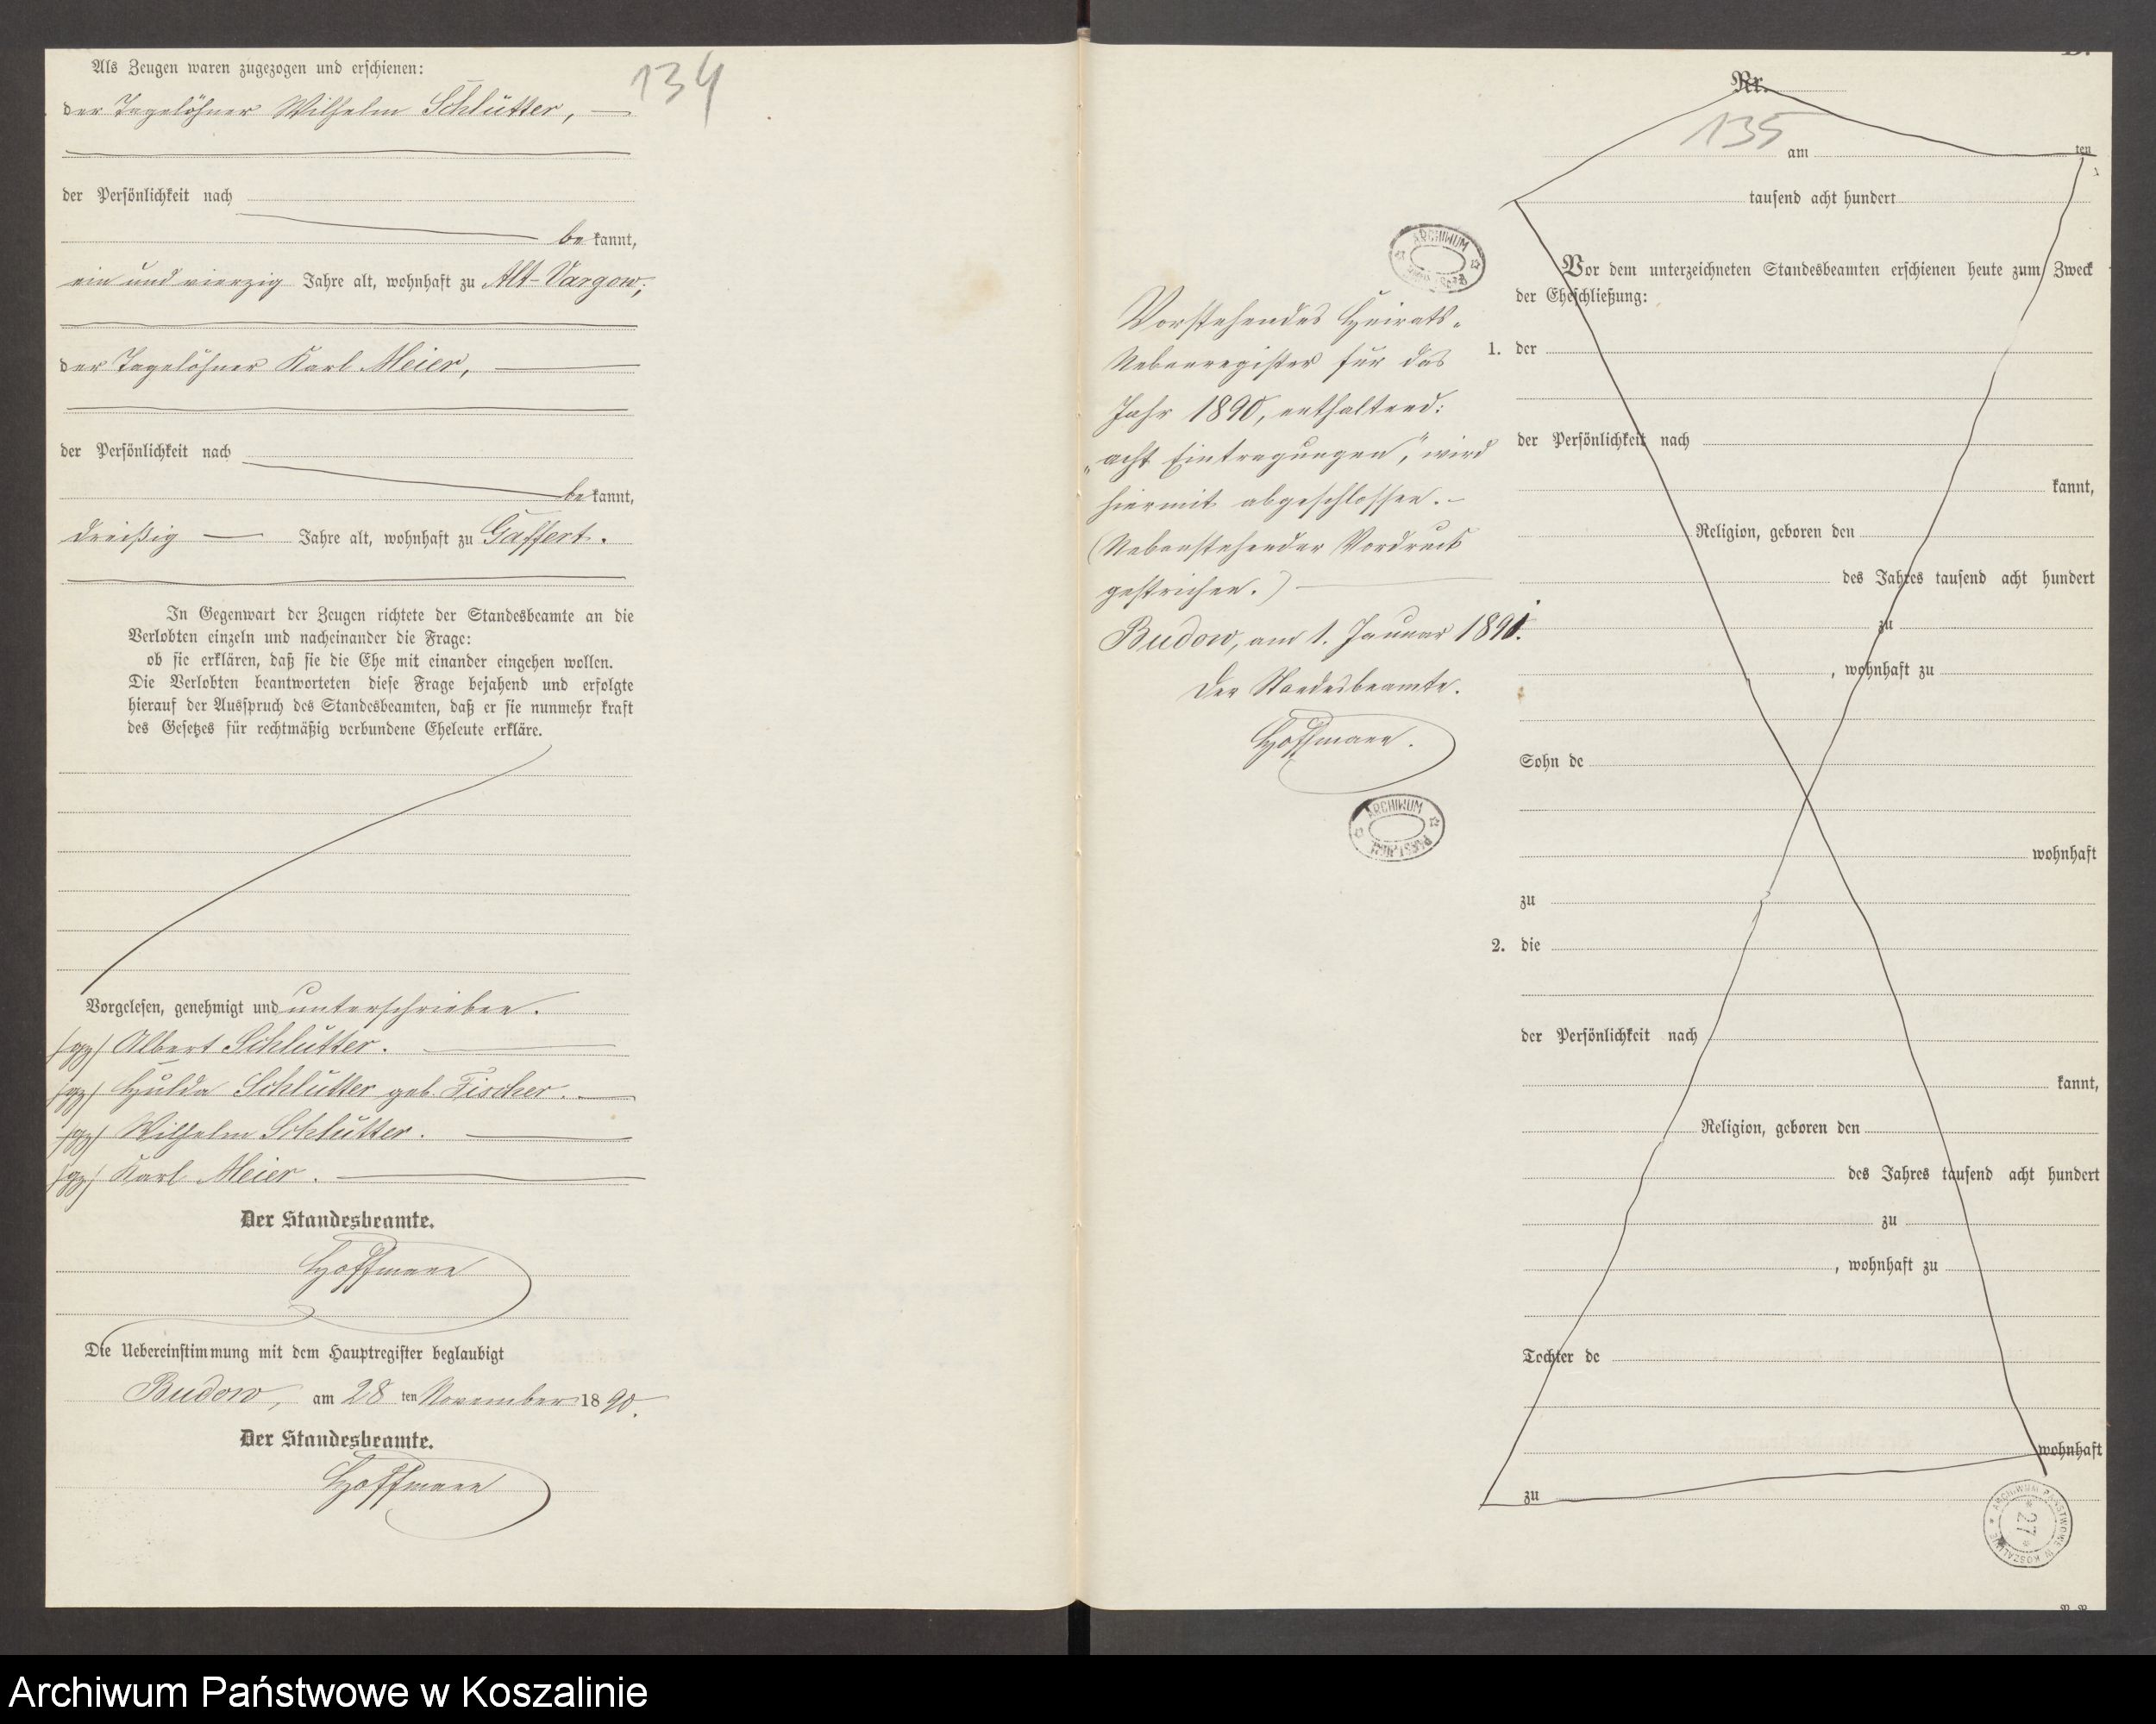 Als Zeugen waren zugezogen und erschienen:
134
der Tagelöhner Wilhelm Schlütter,
der Persönlichkeit nach
be kannt,
ein und vierzig Jahre alt, wohnhaft zu Alt-Vargow;
der Tagelöhner Karl Meier,
der Persönlichkeit nach
be kannt,
dreißig Jahre alt, wohnhaft zu Gaffert.
In Gegenwart der Zeugen richtete der Standesbeamte an die
Verlobten einzeln und nacheinander die Frage:
ob sie erklären, daß sie die Ehe mit einander eingehen wollen.
Die Verlobten beantworteten diese Frage bejahend und erfolgte
hierauf der Ausspruch des Standesbeamten, daß er sie nunmehr kraft
des Gesetzes für rechtmäßig verbundene Eheleute erkläre.
Vorgelesen, genehmigt und unterschrieben.
/gz/ Albert Schlütter.
/gz/ Hulda Schlütter geb. Fischer.
/gz/ Wilhelm Schlütter.
/gz/ Karl Meier.
Der Standesbeamte.
Hoffmann
Die Uebereinstimmung mit dem Hauptregister beglaubigt
Budow, am 28 ten November 1890.
Der Standesbeamte.
Hoffmann
ARCHIWUM
Vorstehendes Heirats-
Nebenregister für das
Jahr 1890, enthaltend:
„acht Eintragungen", wird
hiermit abgeschlossen.-
(Nebenstehender Vordruck
gestrichen.)
Budow, am 1. Januar 1891.
Der Standesbeamte.
Hoffmann.
ARCHIWUM
Nr.
135
am ten
tausend acht hundert
Vor dem unterzeichneten Standesbeamten erschienen heute zum Zweck
der Eheschließung:
1. der
der Persönlichkeit nach
kannt,
Religion, geboren den
des Jahres tausend acht hundert
zu
, wohnhaft zu
Sohn de
wohnhaft
zu
2. die
der Persönlichkeit nach
kannt,
Religion, geboren den
des Jahres tausend acht hundert
zu
, wohnhaft zu
Tochter de
wohnhaft
zu
ARCHIWUM PAŃSTWOWE W KOSZALINIE
27
Archiwum Państwowe w Koszalinie